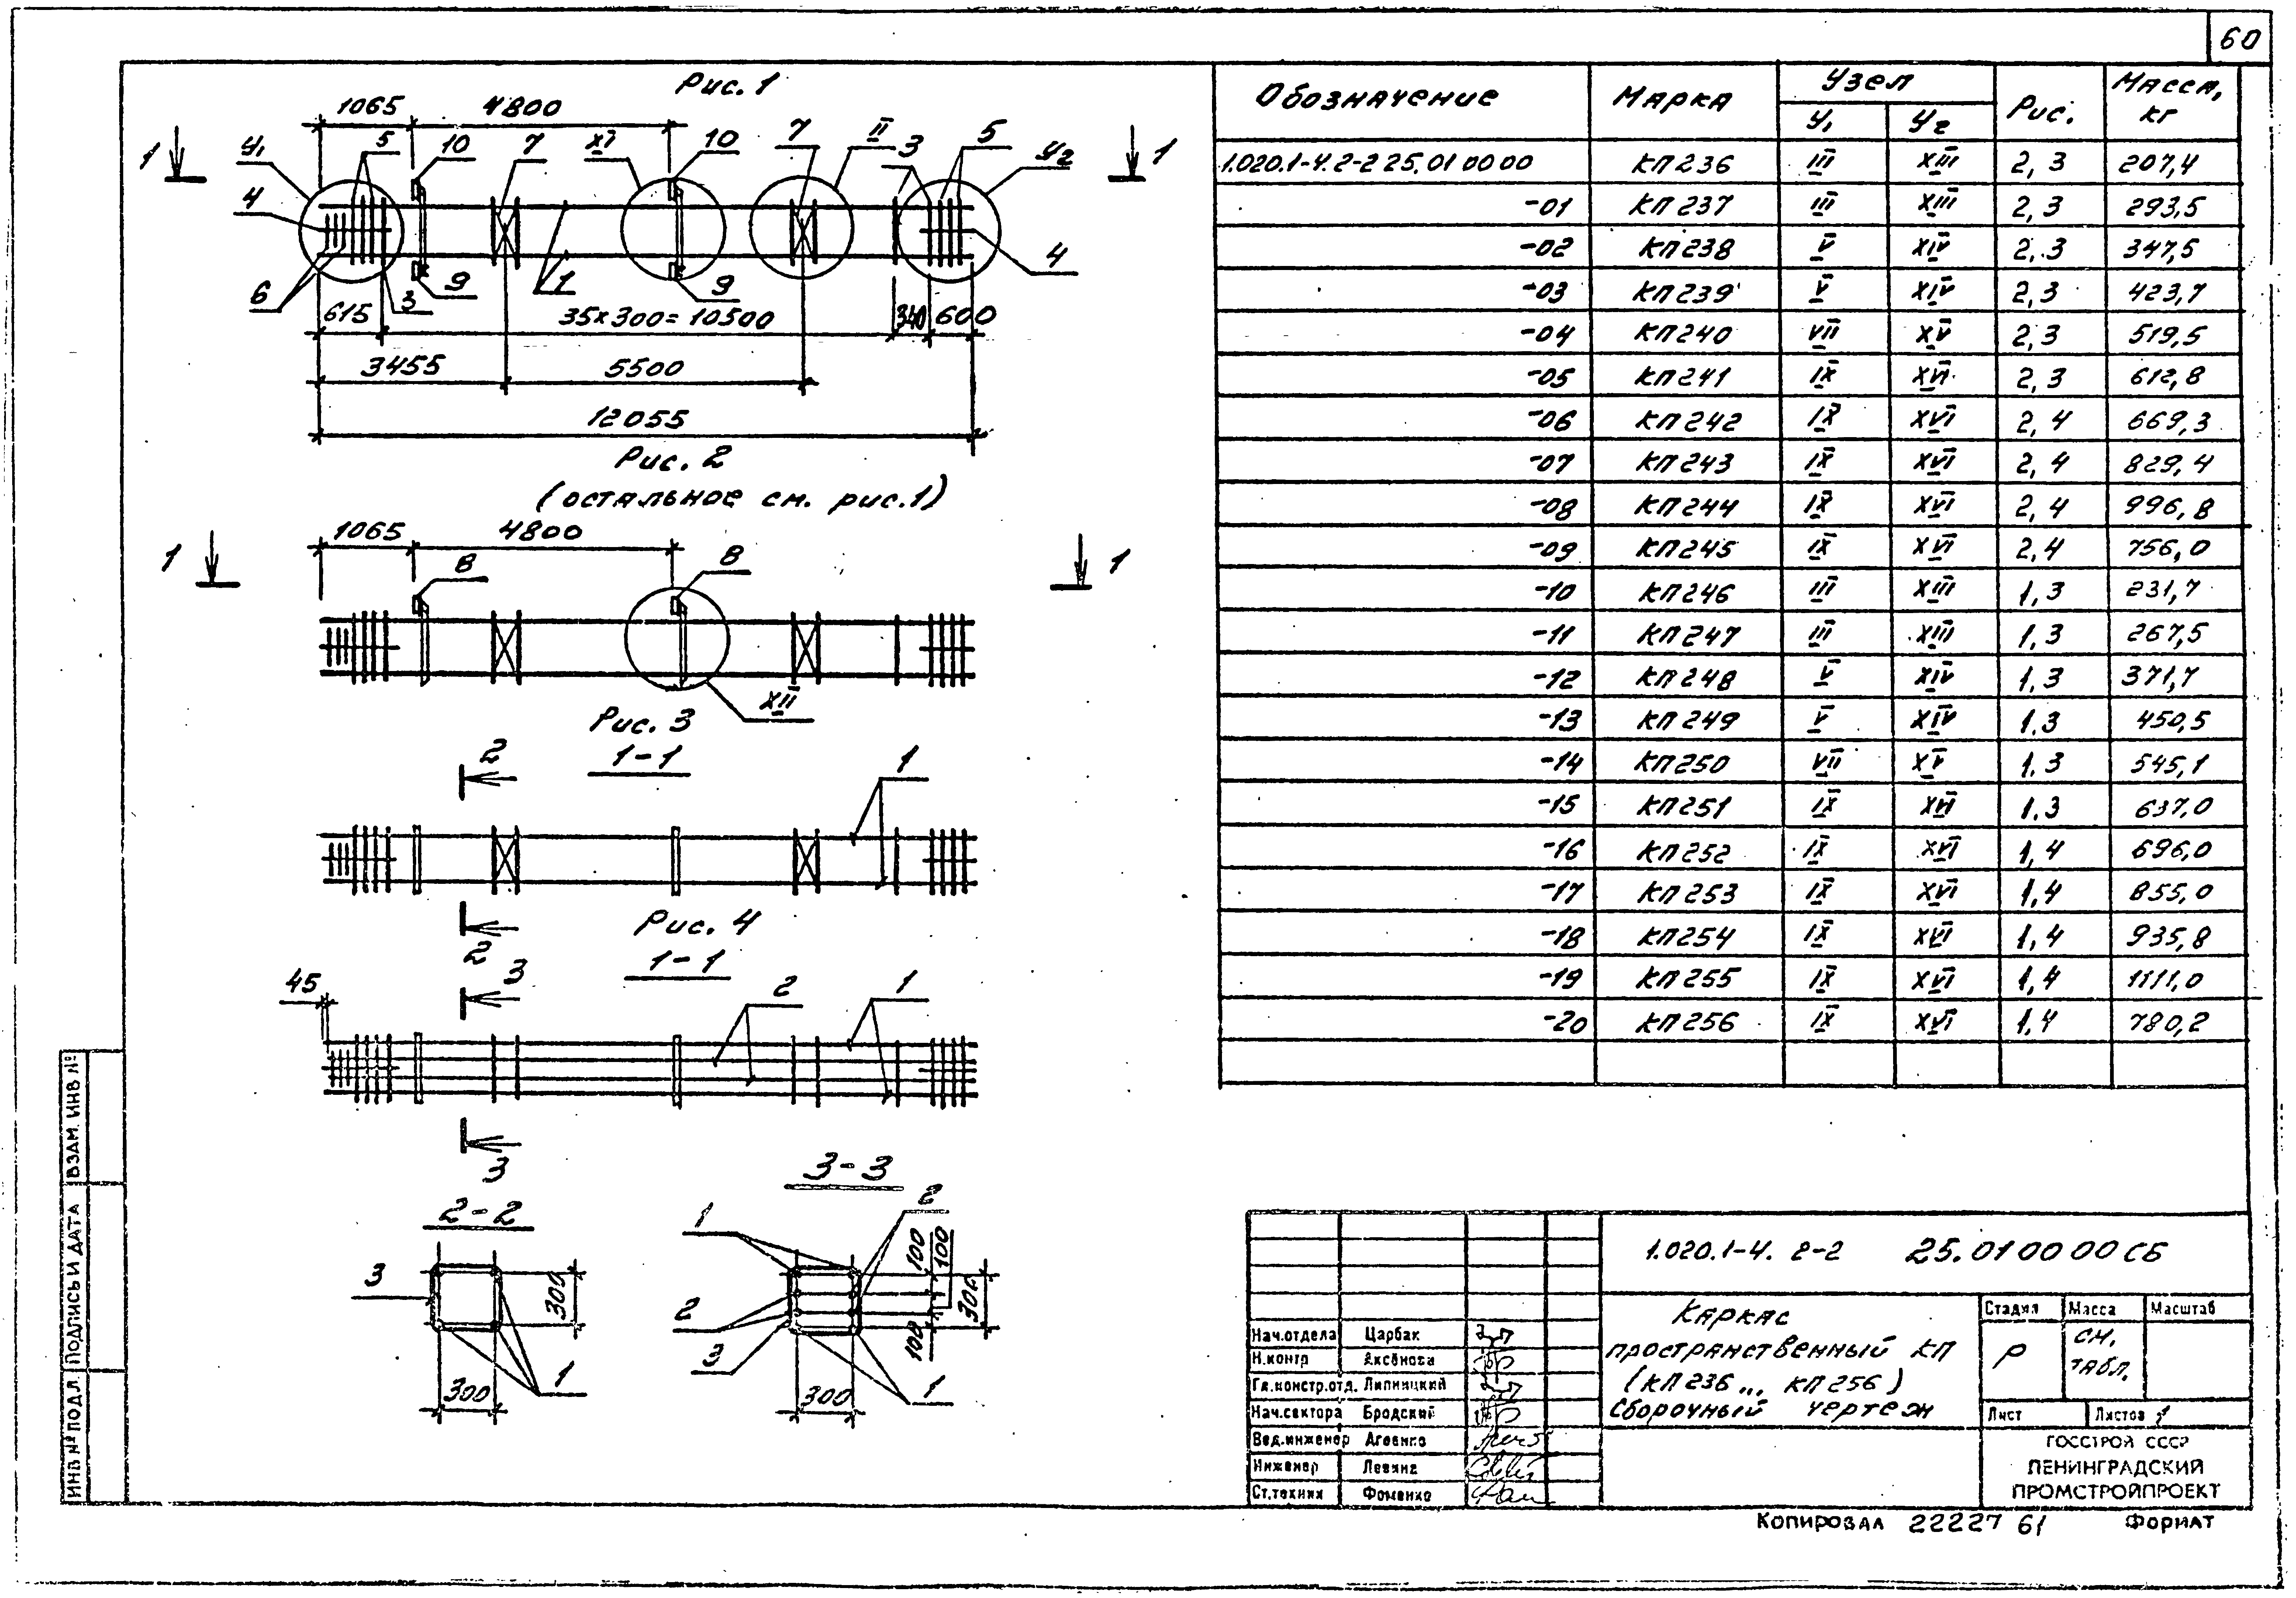 60
Рис. 1
1065 4800
1 У₁ 5 10 7 XI 10 7 II 3 5 У₂ 1
4 4
6 3 9 1 9
615 35×300=10500 340 600
3455 5500
12055
Рис. 2
(остальное см. рис.1)
1065 4800
1 8 8 1
XII
Рис. 3
1-1
2 1
2
Рис. 4
1-1
45 3 2 1
3
2-2
3 300
1
300
3-3
1 2
100 100 300
2
3 100
300 1
Обозначение Марка Узел Рис. Масса, кг
У₁ У₂
1.020.1-4.2-2 25.01 00 00 КП236 III XIII 2, 3 207,4
-01 КП237 III XIII 2, 3 293,5
-02 КП238 V XIV 2, 3 347,5
-03 КП239 V XIV 2, 3 423,7
-04 КП240 VII XV 2, 3 519,5
-05 КП241 IX XVI 2, 3 612,8
-06 КП242 IX XVI 2, 4 669,3
-07 КП243 IX XVI 2, 4 829,4
-08 КП244 IX XVI 2, 4 996,8
-09 КП245 IX XVI 2, 4 756,0
-10 КП246 III XIII 1, 3 231,7
-11 КП247 III XIII 1, 3 267,5
-12 КП248 V XIV 1, 3 371,7
-13 КП249 V XIV 1, 3 450,5
-14 КП250 VII XV 1, 3 545,1
-15 КП251 IX XVI 1, 3 637,0
-16 КП252 IX XVI 1, 4 696,0
-17 КП253 IX XVI 1, 4 855,0
-18 КП254 IX XVI 1, 4 935,8
-19 КП255 IX XVI 1, 4 1111,0
-20 КП256 IX XVI 1, 4 780,2
1.020.1-4. 2-2 25.01 00 00 СБ
Каркас
пространственный КП
(КП236... КП256)
Сборочный чертеж
Стадия Масса Масштаб
Р см. табл.
Лист Листов 1
ГОССТРОЙ СССР
ЛЕНИНГРАДСКИЙ
ПРОМСТРОЙПРОЕКТ
Нач.отдела Царбак
Н.контр Аксёнова
Гл.констр.отд. Липницкий
Нач.сектора Бродский
Вед.инженер Агеенко
Инженер Левина
Ст.техник Фоменко
Копировал 22227 61 Формат
ИНВ № ПОДЛ. ПОДПИСЬ И ДАТА ВЗАМ. ИНВ №